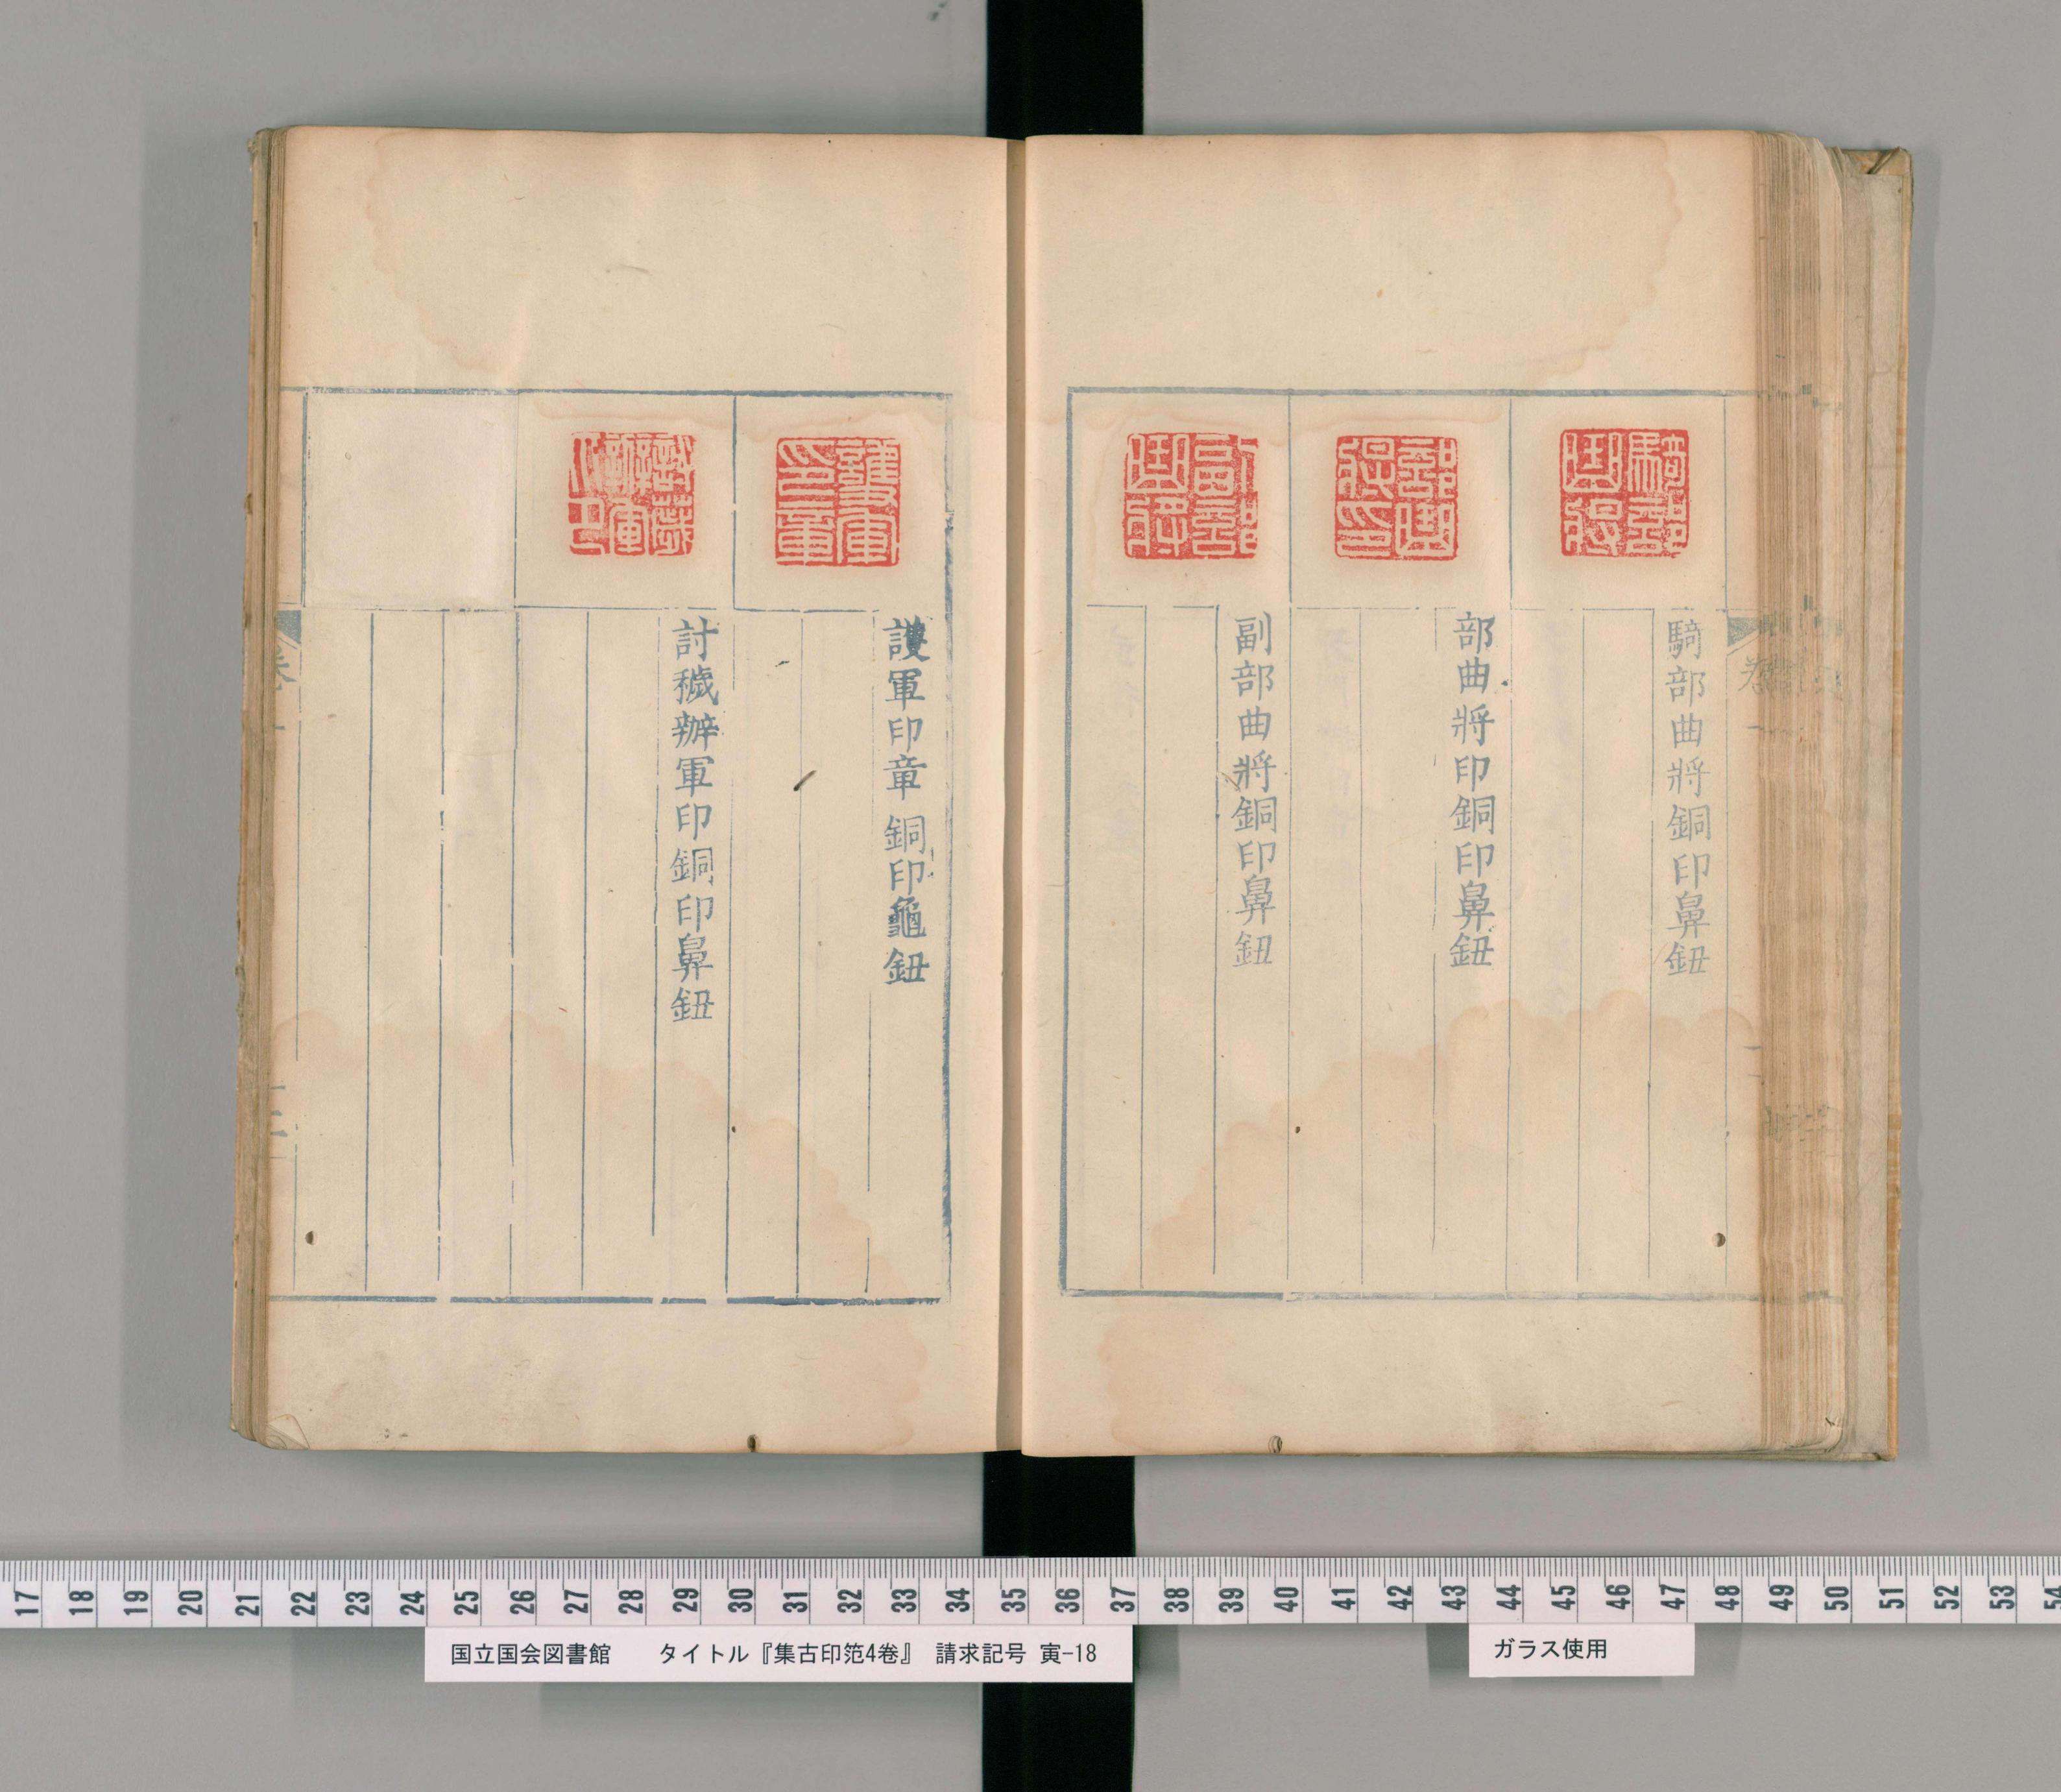 騎部曲將
騎部曲將銅印鼻鈕
部曲將印
部曲將印銅印鼻鈕
副部曲將
副部曲將銅印鼻鈕
護軍印章
護軍印章 銅印龜鈕
討穢辦軍印
討穢辦軍印銅印鼻鈕
17 18 19 20 21 22 23 24 25 26 27 28 29 30 31 32 33 34 35 36 37 38 39 40 41 42 43 44 45 46 47 48 49 50 51 52 53 54
国立国会図書館 タイトル『集古印笵4巻』 請求記号 寅-18
ガラス使用